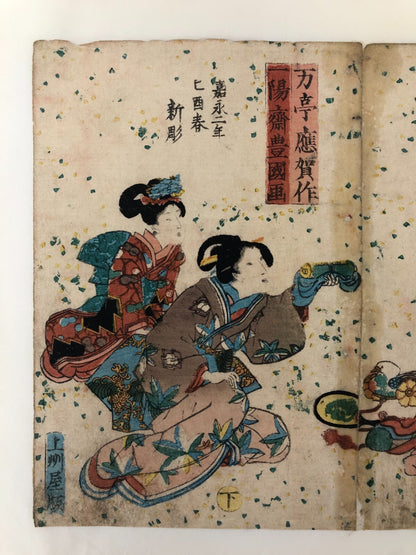 万亭應賀作
一陽齋豊國画
嘉永二年
己酉春
新彫
上州屋
下